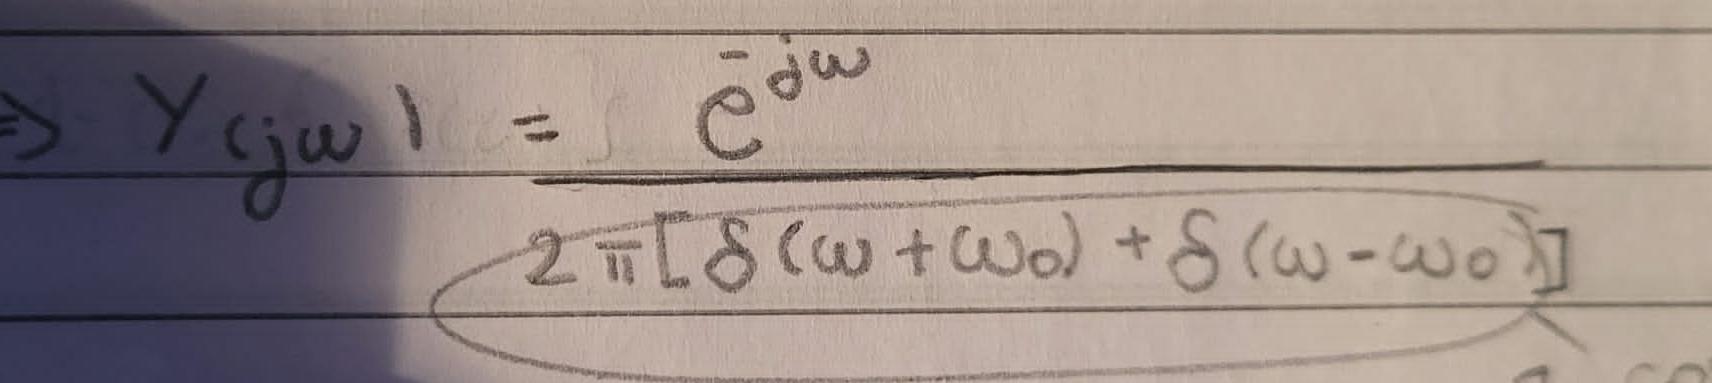 ⇒ Y(jω) = e^-jω
2π[δ(ω+ω₀) + δ(ω-ω₀)]